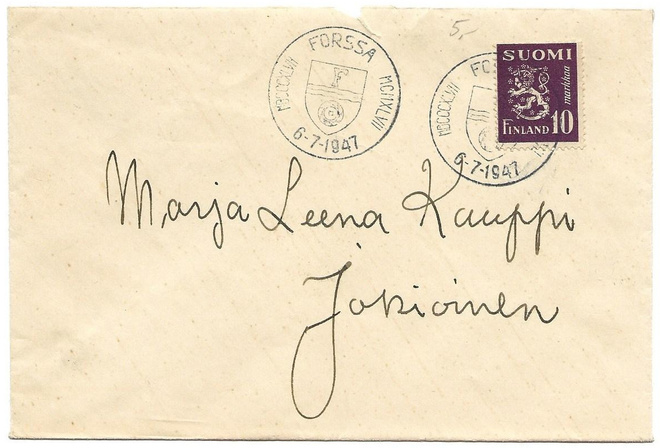 5,-
FORSSA
MDCCCXLVII
MCMXLVII
6-7-1947
SUOMI
markkaa
FINLAND 10
FO
MDCCCXLVII
6-7-1947
Marja Leena Kauppi
Jokioinen